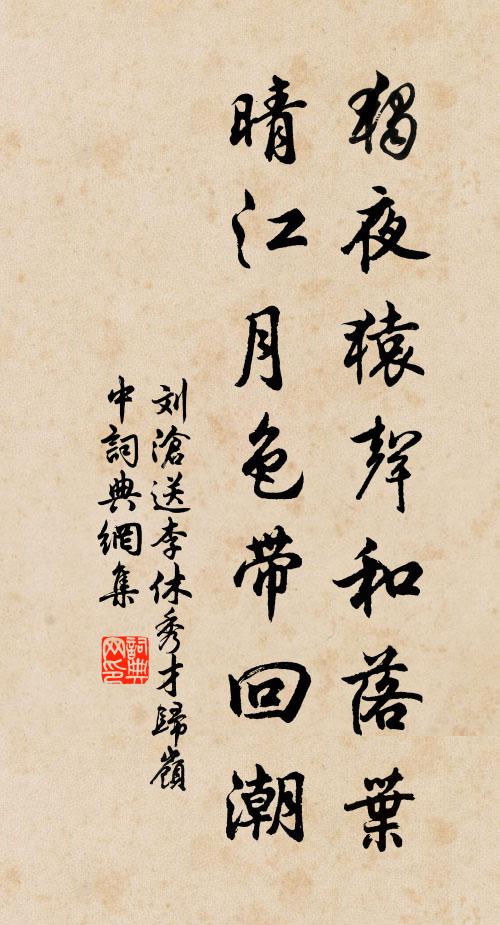 獨夜猿聲和落葉
晴江月色帶回潮
刘滄送李休秀才歸嶺
中詞典網集
詞典
网印